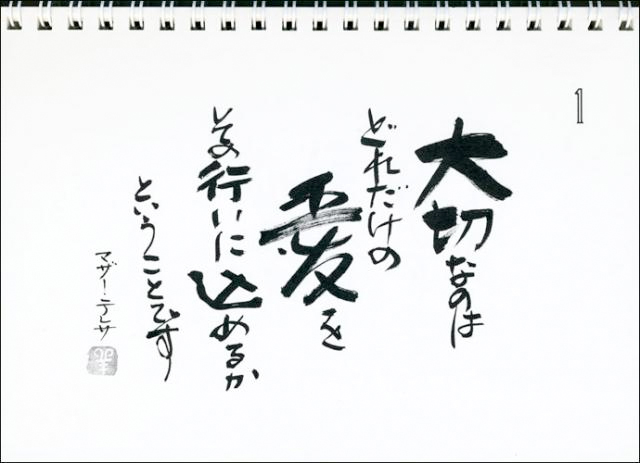 1
大切なのは
どれだけの
愛を
その行いに込めるか
ということです
マザー・テレサ